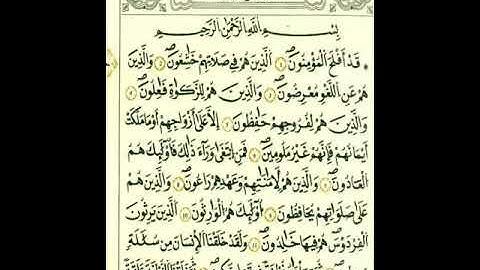 بِسْمِ اللَّهِ الرَّحْمَٰنِ الرَّحِيمِ
قَدْ أَفْلَحَ الْمُؤْمِنُونَ الَّذِينَ هُمْ فِي صَلَاتِهِمْ خَٰشِعُونَ وَالَّذِينَ
هُمْ عَنِ اللَّغْوِ مُعْرِضُونَ وَالَّذِينَ هُمْ لِلزَّكَوٰةِ فَٰعِلُونَ
وَالَّذِينَ هُمْ لِفُرُوجِهِمْ حَٰفِظُونَ إِلَّا عَلَىٰ أَزْوَٰجِهِمْ أَوْ مَا مَلَكَتْ
أَيْمَٰنُهُمْ فَإِنَّهُمْ غَيْرُ مَلُومِينَ فَمَنِ ابْتَغَىٰ وَرَآءَ ذَٰلِكَ فَأُولَٰٓئِكَ هُمُ
الْعَادُونَ وَالَّذِينَ هُمْ لِأَمَٰنَٰتِهِمْ وَعَهْدِهِمْ رَٰعُونَ وَالَّذِينَ هُمْ
عَلَىٰ صَلَوَٰتِهِمْ يُحَافِظُونَ أُولَٰٓئِكَ هُمُ الْوَٰرِثُونَ الَّذِينَ يَرِثُونَ
الْفِرْدَوْسَ هُمْ فِيهَا خَٰلِدُونَ وَلَقَدْ خَلَقْنَا الْإِنسَٰنَ مِن سُلَٰلَةٍ